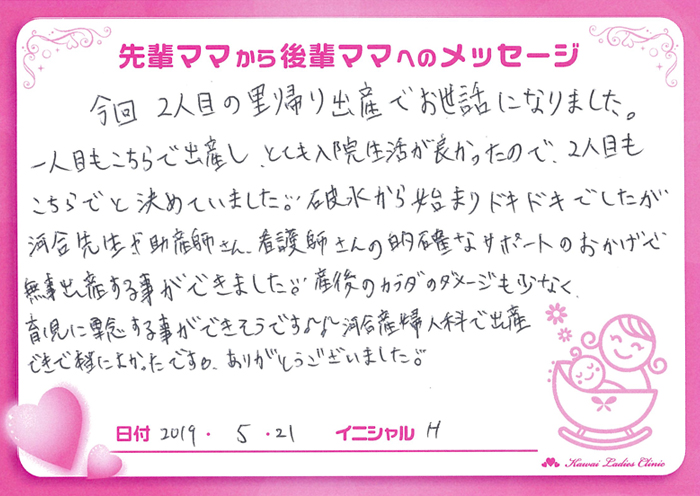 先輩ママから後輩ママへのメッセージ
今回 2人目の里帰り出産でお世話になりました。
一人目もこちらで出産し、とても入院生活が良かったので、2人目も
こちらでと決めていました。破水から始まりドキドキでしたが
河合先生や助産師さん、看護師さんの的確なサポートのおかげで
無事出産する事ができました。産後のカラダのダメージも少なく、
育児に専念する事ができそうです♪ 河合産婦人科で出産
できて本当によかったです。ありがとうございました。
日付 2019・5・21 イニシャル H
Kawai Ladies Clinic